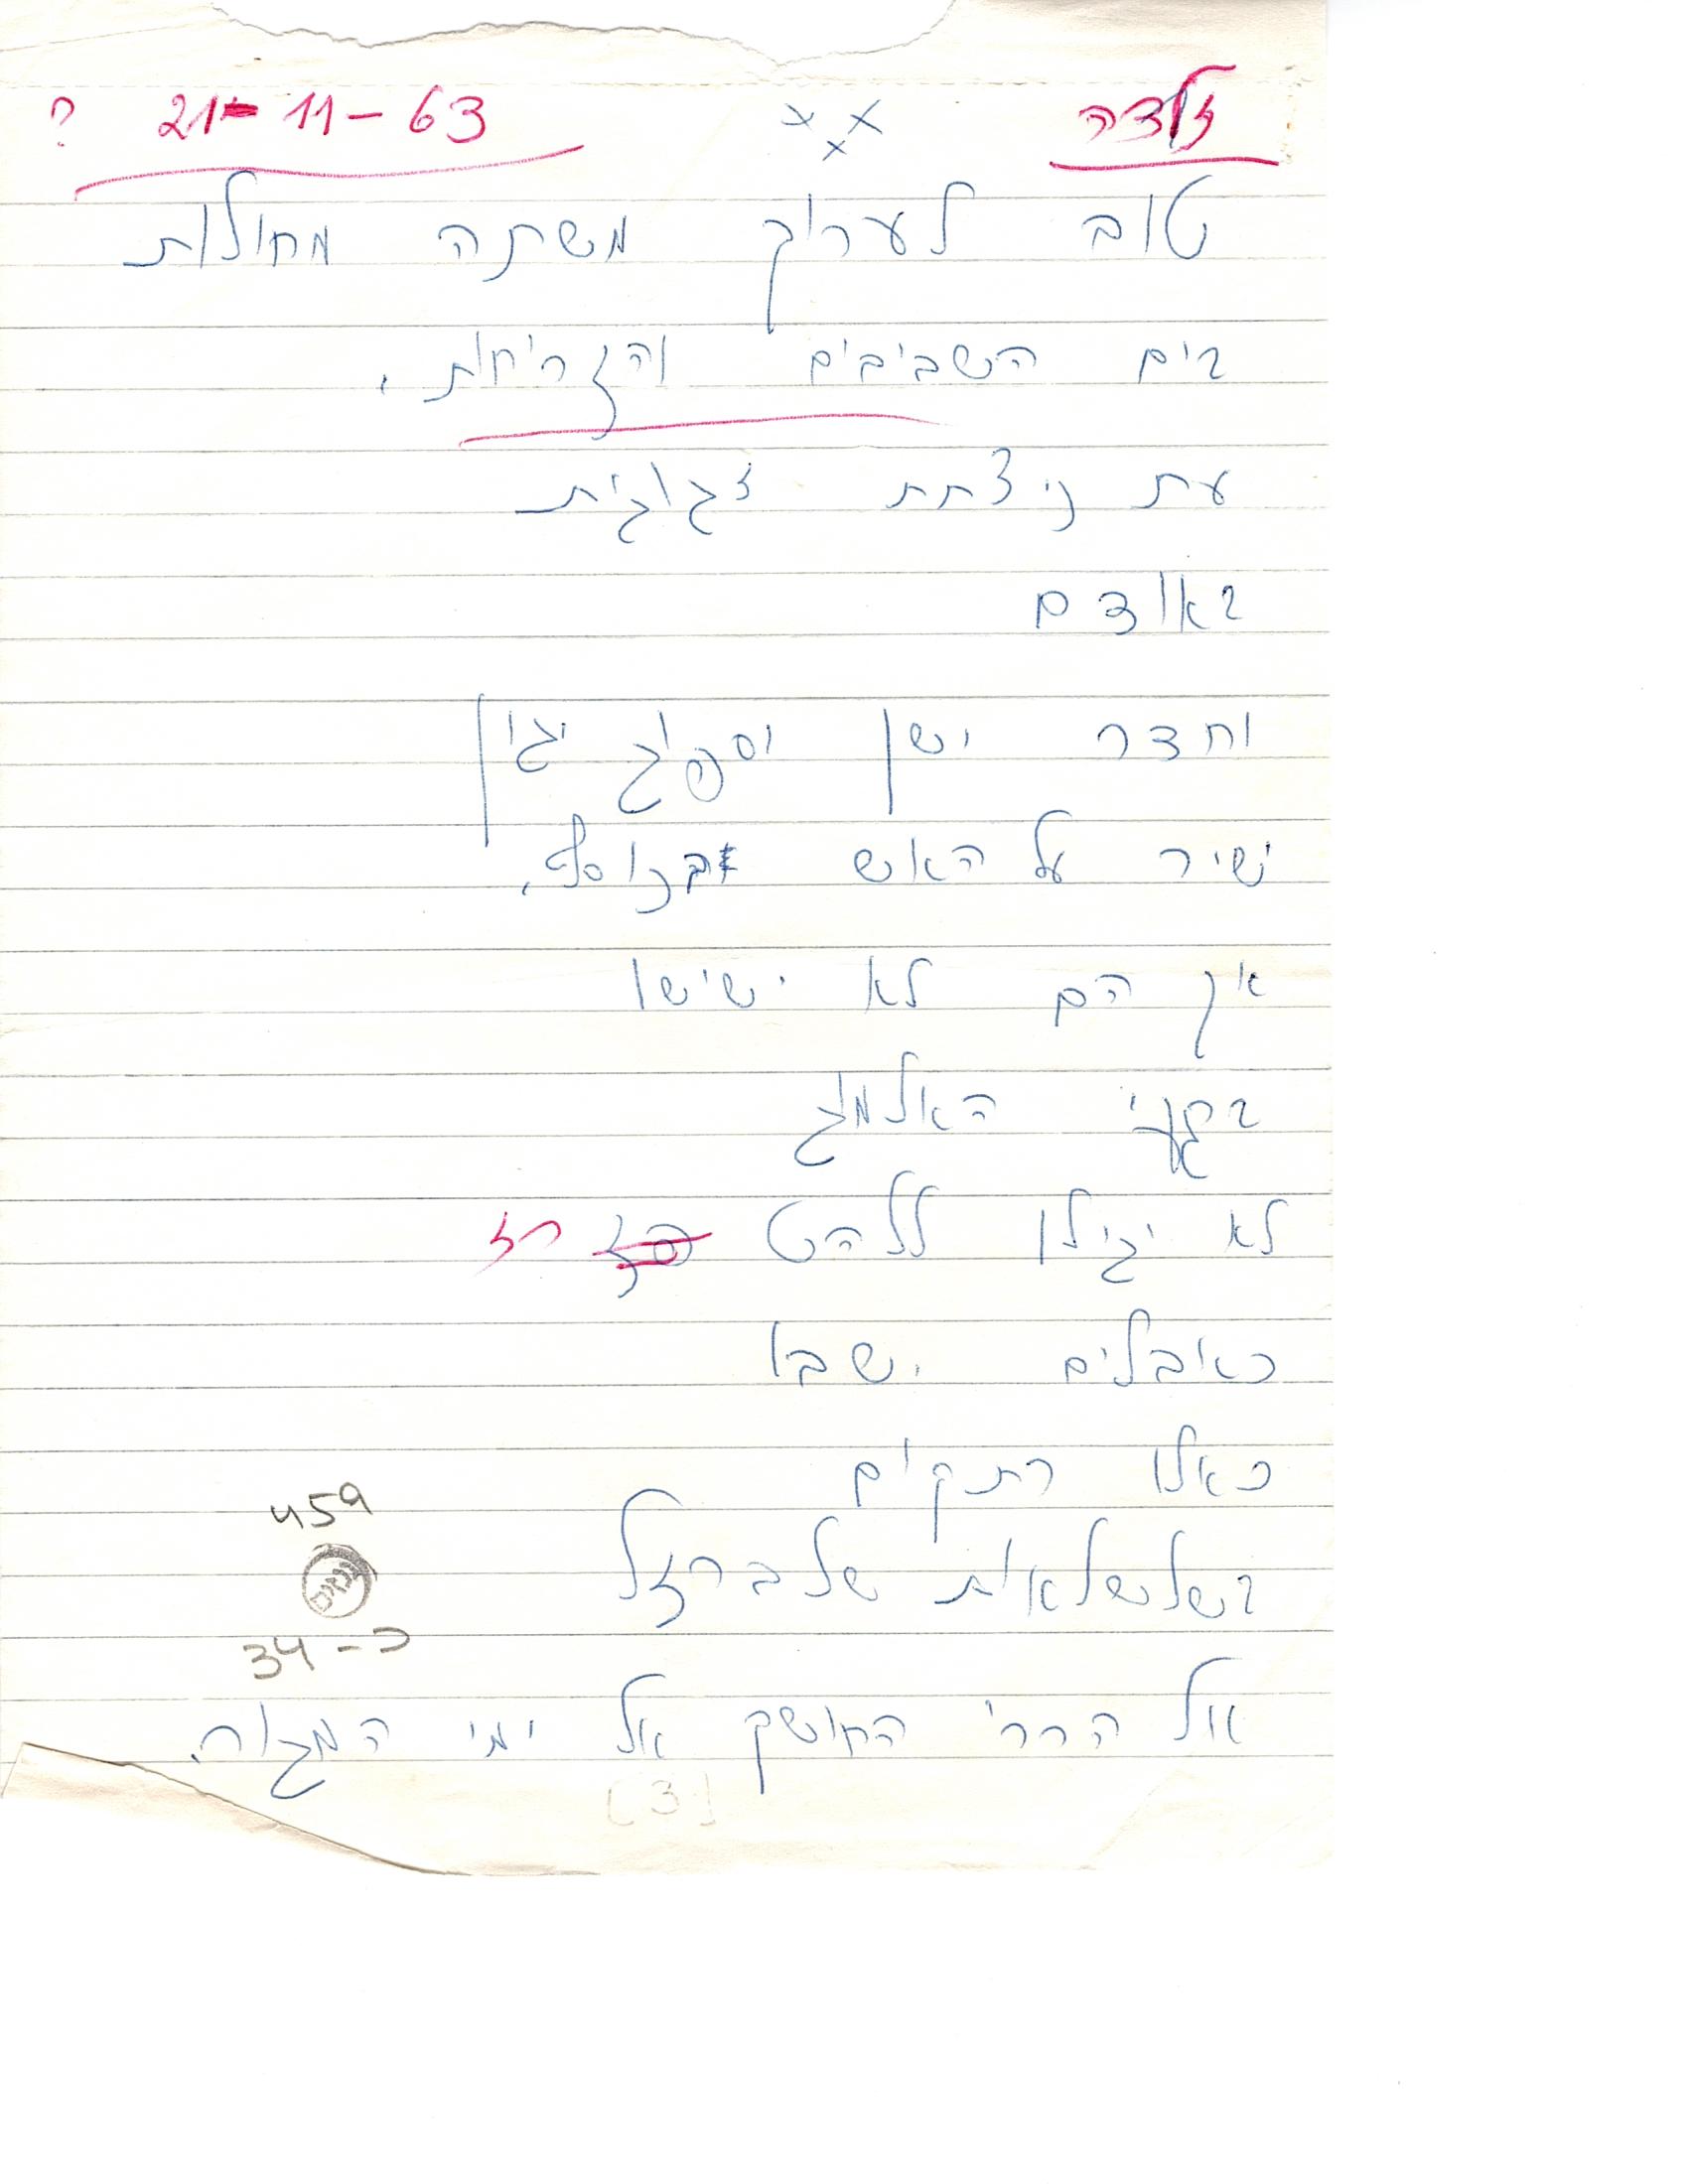 זלדה
21-11-63 ?
טוב לערוך משתה מחולות
בים השביבים והזריחות,
עת ניצתת זגוגית
באודם
וחדר ישן וספוג יגון
ישיר על האש בנוסף,
אך הם לא ישישו
האלמוג
לא יגילו ללהט פז רז
כאבלים ישבו
כאלו רתקים
בשלשלאות של ברזל
אל הררי החושך אל ימי המגור.
459
כ-34
[3]